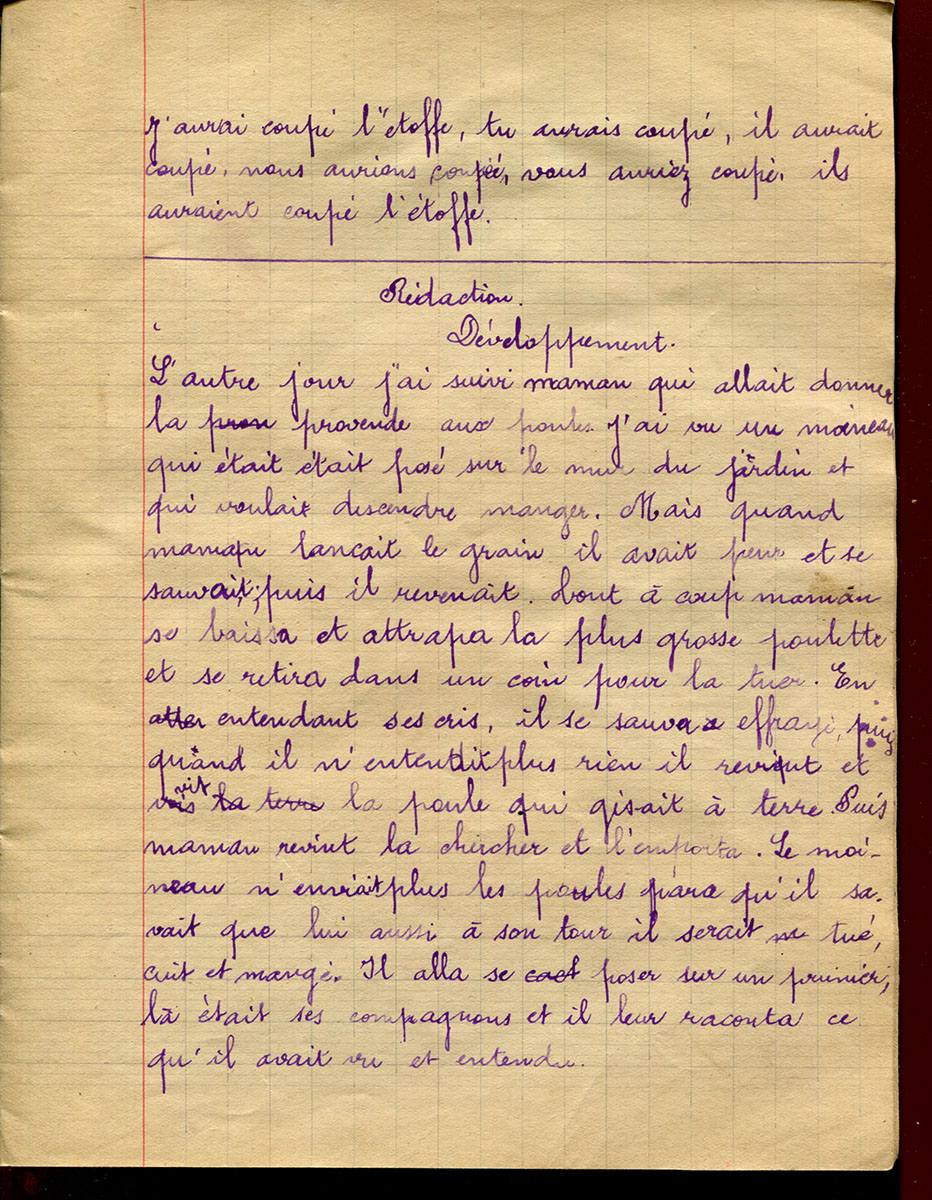 J'aurai coupé l'étoffe, tu aurais coupé, il aurait
coupé, nous aurions coupé, vous auriez coupé, ils
auraient coupé l'étoffe.
Rédaction.
Développement.
L'autre jour j'ai suivi maman qui allait donner
la pron provende aux poules. J'ai vu un moineau
qui était était posé sur le mur du jardin et
qui voulait descendre manger. Mais quand
maman lançait le grain il avait peur et se
sauvait, puis il revenait. Tout à coup maman
se baissa et attrapa la plus grosse poulette
et se retira dans un coin pour la tuer. En
atten entendant ses cris, il se sauva effrayé, puis
quand il n'entendit plus rien il revint et
vit la terre la poule qui gisait à terre. Puis
maman revint la chercher et l'emporta. Le moi-
neau n'enviait plus les poules parce qu'il sa-
vait que lui aussi à son tour il serait tué,
cuit et mangé. Il alla se poser sur un prunier,
là était ses compagnons et il leur raconta ce
qu'il avait vu et entendu.